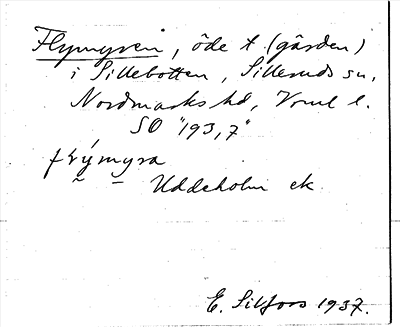 Flymyren, öde t. (gården)
i Sillebotten, Silleruds sn,
Nordmarks hd, Vrml l.
SO "193,7"
Uddeholm ek.
E. Silfors 1937.